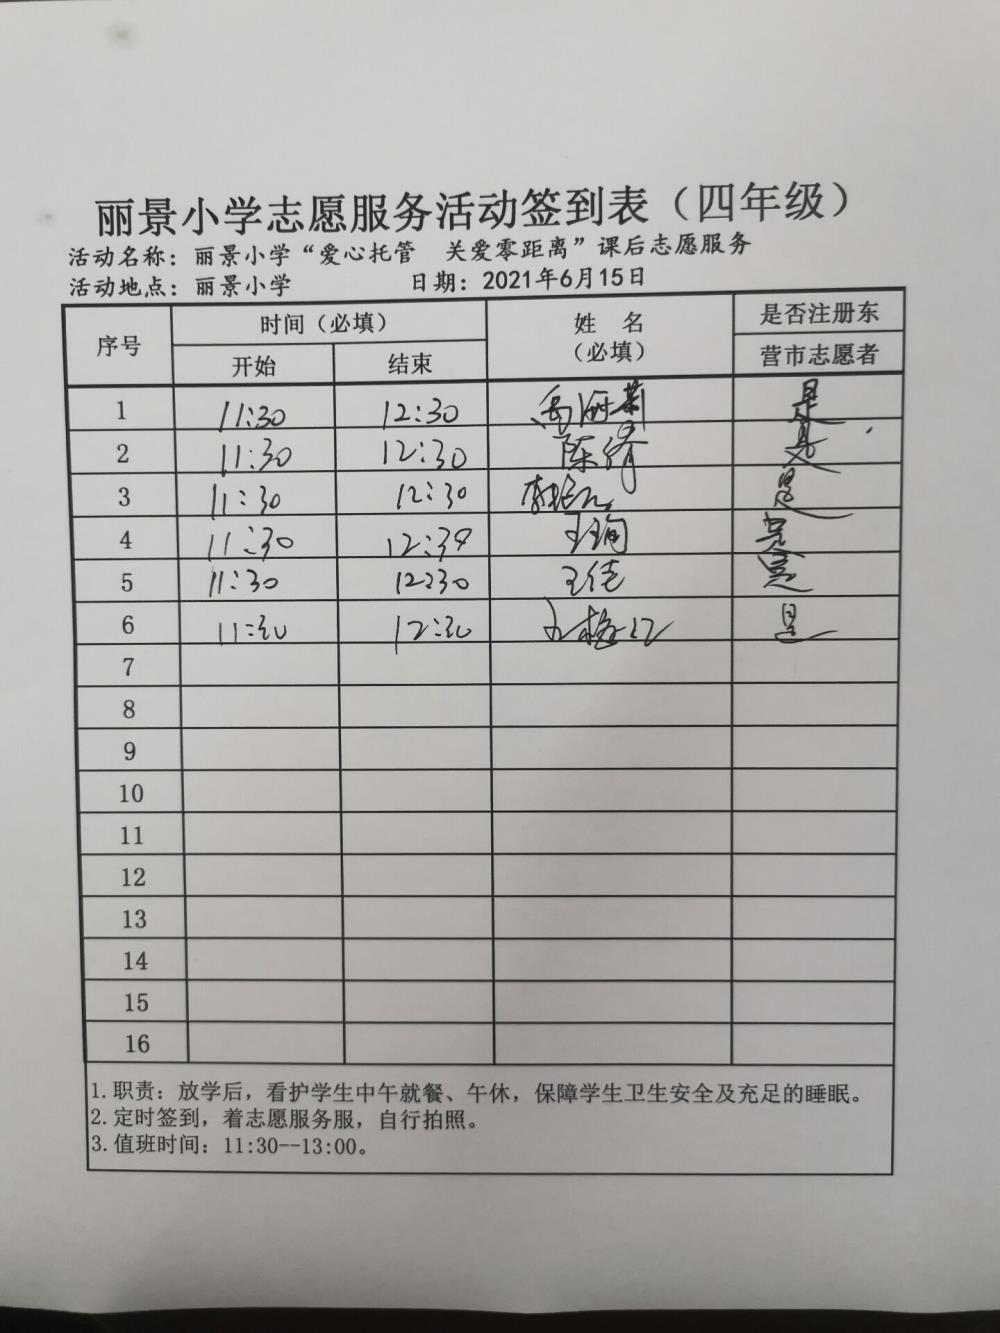 丽景小学志愿服务活动签到表（四年级）
活动名称：丽景小学“爱心托管 关爱零距离”课后志愿服务
活动地点：丽景小学 日期：2021年6月15日
序号 时间（必填） 姓 名（必填） 是否注册东营市志愿者
开始 结束
1 11:30 12:30 是
2 11:30 12:30 陈 是
3 11:30 12:30 是
4 11:30 12:30 王 是
5 11:30 12:30 王佳 是
6 11:30 12:30 是
7
8
9
10
11
12
13
14
15
16
1.职责：放学后，看护学生中午就餐、午休，保障学生卫生安全及充足的睡眠。
2.定时签到，着志愿服务服，自行拍照。
3.值班时间：11:30--13:00。